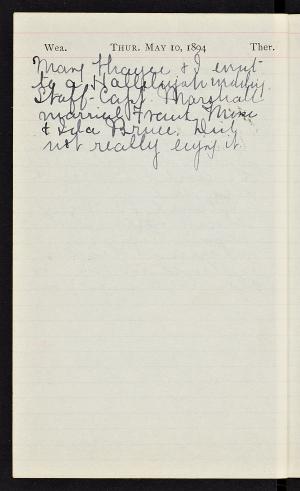 Wea. THUR. MAY 10, 1894 Ther.
Mary Thayer & I went
to a Hallelujah wedding.
Staff-Capt. Marshall
married Frank
& Ida Bruce. Did
not really enjoy it.